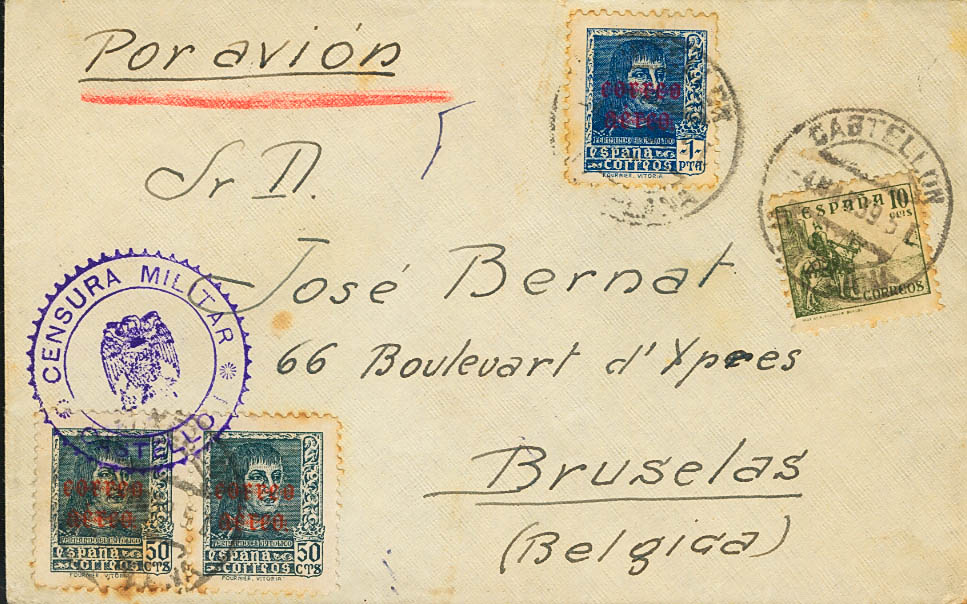 Por avión
Sr D.
José Bernat
66 Boulevart d'Ypres
Bruselas
(Belgica)
correo
aéreo
FERNANDO EL CATOLICO
España
correos
-1-
PTA
FOURNIER. VITORIA
CASTELLON
ESPAÑA 10
CTS
CORREOS
CENSURA MILITAR
CASTELLON
correo
aéreo
España
correos
50
CTS
FOURNIER. VITORIA
correo
aéreo
España
correos
50
CTS
FOURNIER. VITORIA